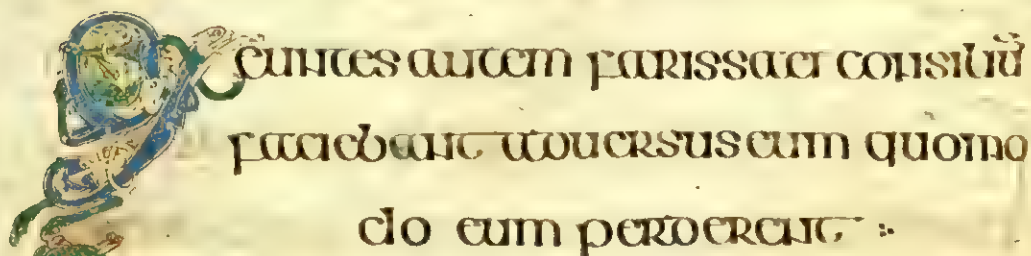 Exeuntes autem farissaei consiliū
faciebant aduersus eum quomo
do eum perderent